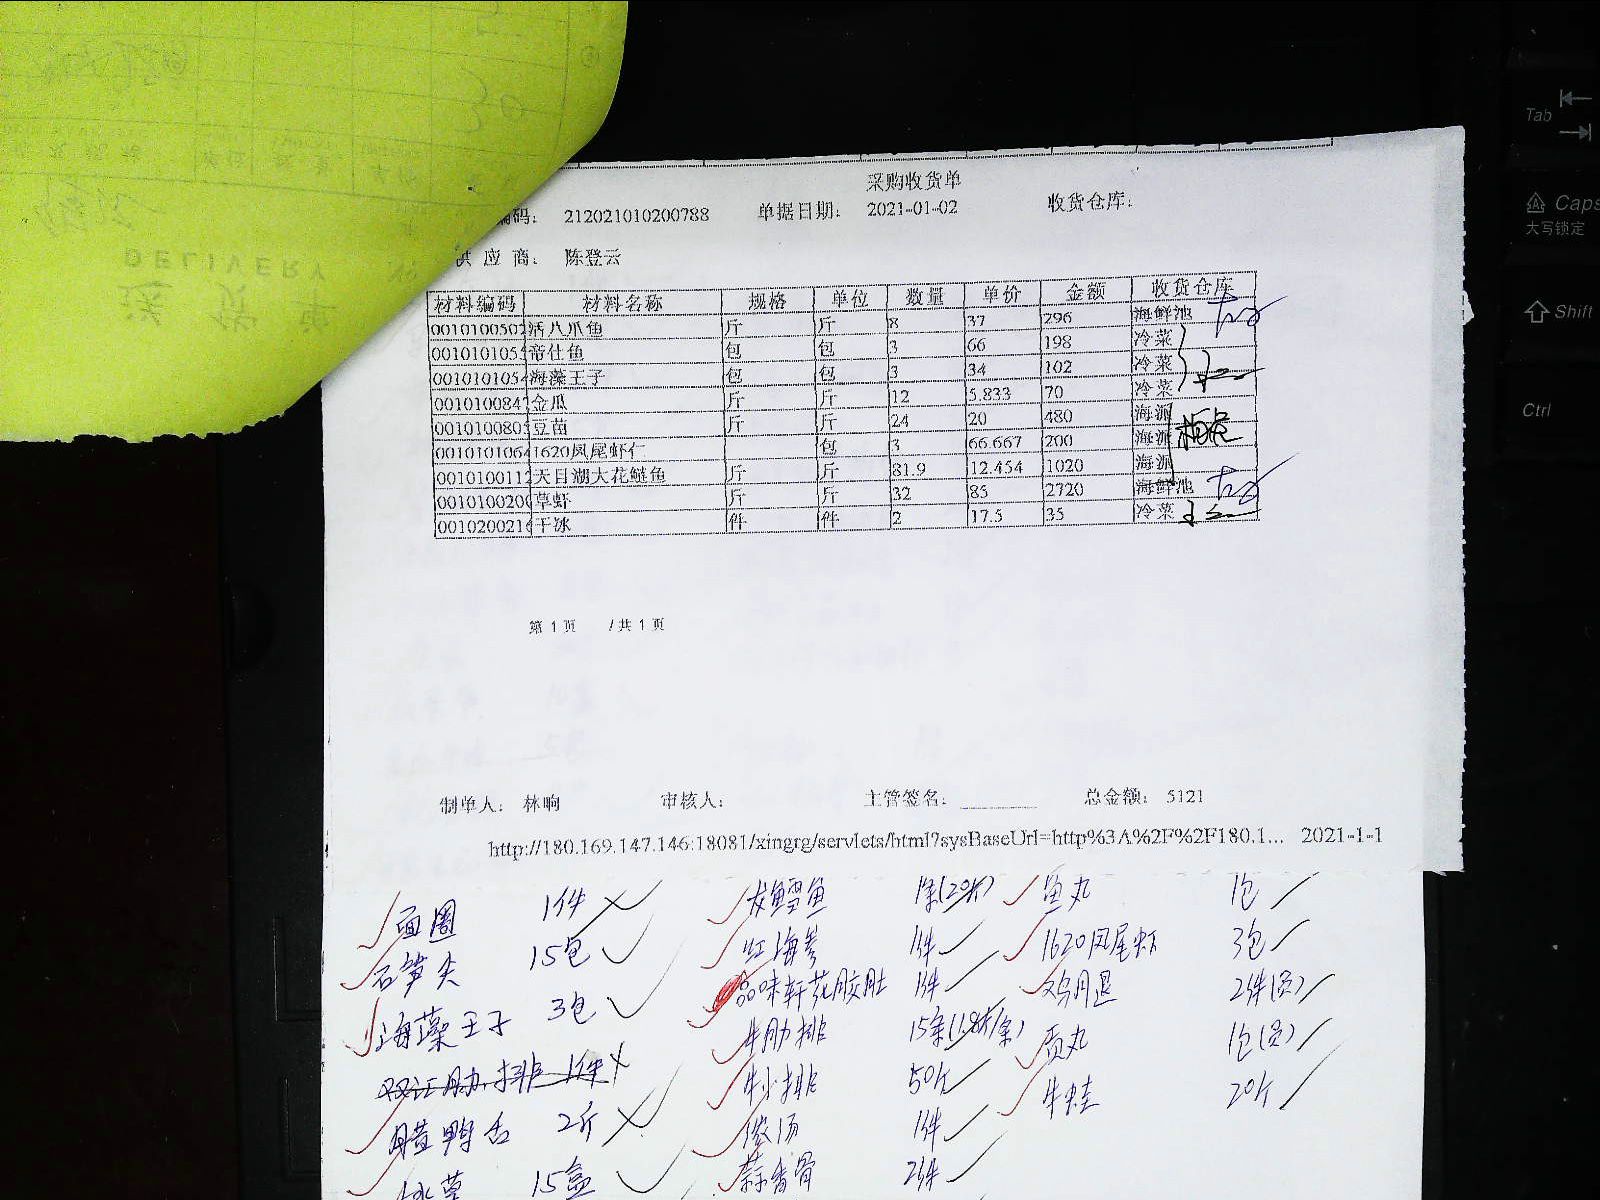 采购收货单
编码： 212021010200788 单据日期： 2021-01-02 收货仓库：
供 应 商： 陈登云
材料编码 材料名称 规格 单位 数量 单价 金额 收货仓库
0010100502 活八爪鱼 斤 斤 8 37 296 海鲜池
001010105 帝仕鱼 包 包 3 66 198 冷菜
0010101054 海藻王子 包 包 3 34 102 冷菜
0010100847 金瓜 斤 斤 12 5.833 70 冷菜
001010080 豆苗 斤 斤 24 20 480 海派
0010101064 1620凤尾虾仁 包 3 66.667 200 海派
0010100112 天目湖大花鲢鱼 斤 斤 81.9 12.454 1020 海派
001010020 草虾 斤 斤 32 85 2720 海鲜池
001020021 干冰 件 件 2 17.5 35 冷菜
第 1 页 /共 1 页
制单人： 林响 审核人： 主管签名： 总金额： 5121
http://180.169.147.146:18081/xingrg/servlets/html?sysBaseUrl=http%3A%2F%2F180.1... 2021-1-1
面圈 1件 龙鳕鱼 1条(20斤) 鱼丸 1包
石笋尖 15包 红海参 1件 1620凤尾虾 3包
海藻王子 3包 品味轩花胶肚 1件 2件
牛肋排 15条 贡丸 1包
双汇肋排 1件 牛小排 50斤 牛蛙 20斤
腊鸭舌 2斤 浓汤 1件
15盒 蒜香骨 2件
Tab
Caps
大写锁定
Shift
Ctrl
DELIVERY
送 货 单